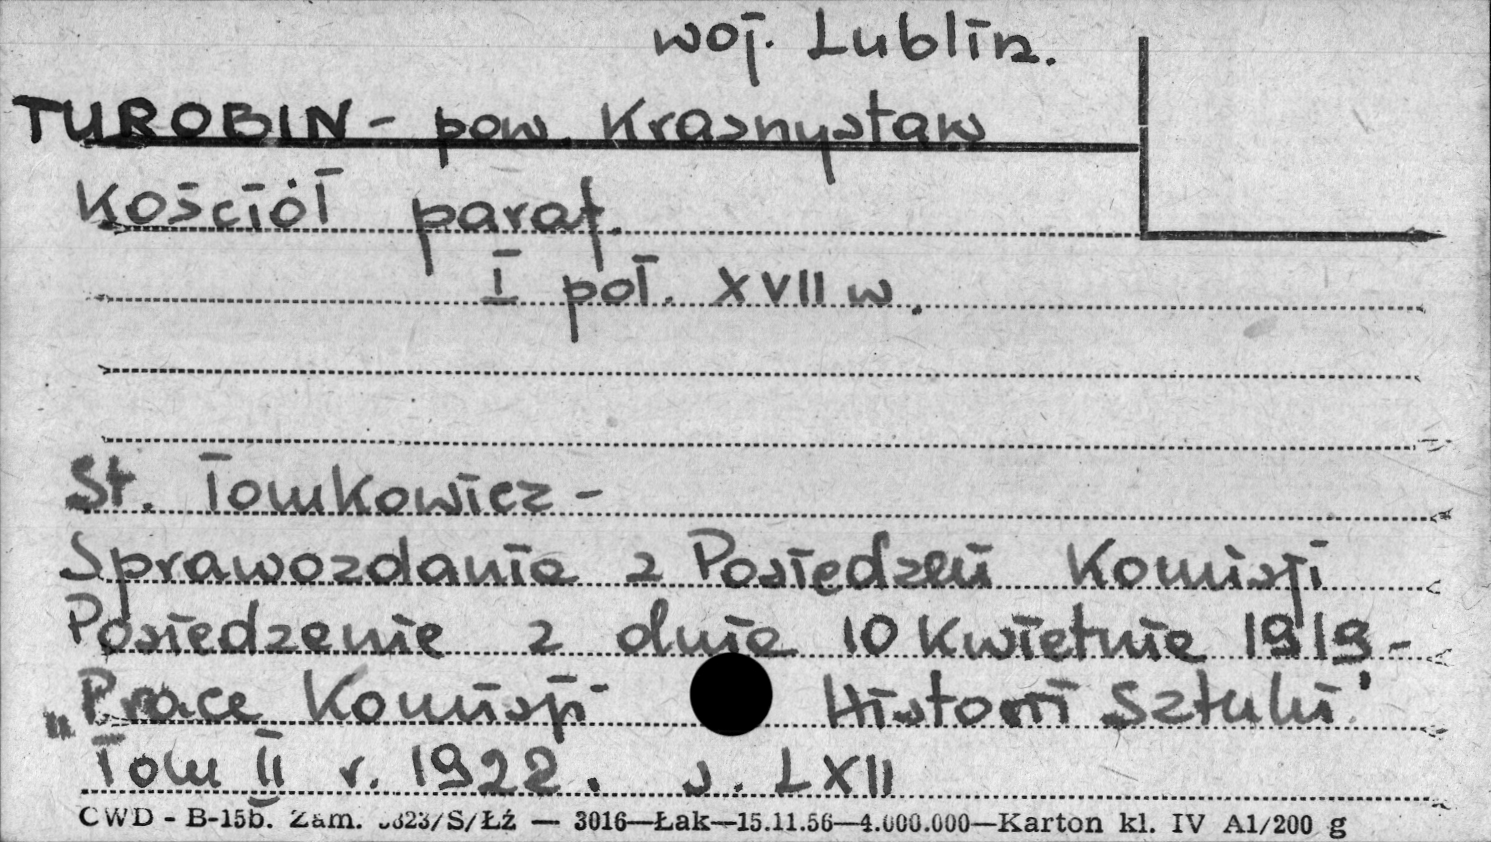 woj. Lublin.
TUROBIN - pow. Krasnystaw
Kościół paraf.
I poł. XVII w.
St. Tomkowicz -
Sprawozdanie z Posiedzeń Komisji
Posiedzenie z dnia 10 Kwietnia 1919 -
"Prace Komisji Historii Sztuki"
Tom II r. 1922. s. LXII
CWD - B-15b. Zam. 3823/S/Łź — 3016—Łak—15.11.56—4.000.000—Karton kl. IV A1/200 g